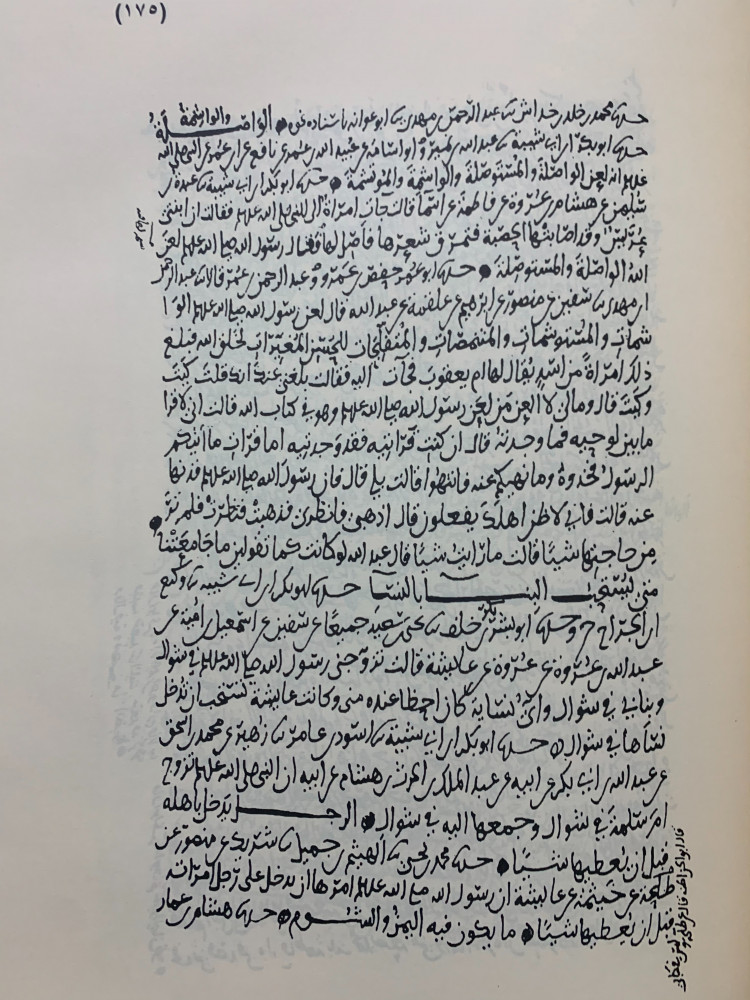 (١٧٥)
حدثنا محمد بن خلد بن خداش بن عبد الرحمن بن مهدي بن ابو عوانه باسناده نحوه الواصلة والواشمة
حدثنا ابو بكر ابن ابي شيبة بن عبد الله بن نمير وابو اسامة عن عبيد الله بن عمر عن نافع عن ابن عمر عن النبي صلى الله
عليه انه لعن الواصلة والمستوصلة والواشمة والموتشمة حدثنا ابو بكر ابن ابي شيبة بن عبدة بن
سليمن عن هشام بن عروة عن فاطمة عن اسما قالت جات امراة الى النبي صلى الله عليه فقالت ان ابنتي
عريس وقد اصابتها الحصبة فتمرق شعرها فاصل لها فقال رسول الله صلى الله عليه لعن
الله الواصلة والمستوصلة حدثنا ابو عمر حفص بن عمر وعبد الرحمن بن عمر قالا بن عبد الرحمن
ابن مهدي بن سفين عن منصور عن ابرهيم عن علقمة عن عبد الله قال لعن رسول الله صلى الله عليه الوا
شمات والمستوشمات والمتنمصات والمتفلجات للحسن المغيرات لخلق الله فبلغ
ذلك امراة من اسد يقال لها ام يعقوب فجات اليه فقالت بلغني عنك انك قلت كيت
وكيت قال ومالي لا العن من لعن رسول الله صلى الله عليه وهو في كتاب الله قالت اني لاقرا
ما بين لوحيه فما وجدته قال ان كنت قراتيه فقد وجدتيه اما قرات ما اتيكم
الرسول فخذوه وما نهيكم عنه فانتهوا قالت بلى قال فان رسول الله صلى الله عليه قد نها
عنه قالت فاني لاظن اهلك يفعلون قال اذهبي فانظري فذهبت فنظرت فلم تر
من حاجتها شيئا قالت ما رايت شيئا قال عبد الله لو كانت كما تقولين ما جامعتنا
متى يستحب البنا بالنسا حدثنا ابو بكر ابن ابي شيبة بن وكيع
ابن الجراح ح وحدثنا ابو بشر بكر بن خلف بن يحيى بن سعيد جميعا عن سفين عن اسمعيل بن امية عن
عبد الله بن عروة عن عروة عن عايشة قالت تزوجني رسول الله صلى الله عليه في شوال
وبنا بي في شوال واي نسايه كان احظا عنده مني وكانت عايشة تستحب ان تدخل
نساها في شوال حدثنا ابو بكر ابن ابي شيبة بن اسود بن عامر بن زهير عن محمد بن اسحق
عن عبد الله بن ابي بكر عن ابيه عن عبد الملك بن الحرث بن هشام عن ابيه ان النبي صلى الله عليه تزوج
ام سلمة في شوال وجمعها اليه في شوال الرجل يدخل باهله
قبل ان يعطيها شيئا حدثنا محمد بن يحيى بن الهيثم بن جميل بن شريك عن منصور عن
طلحة عن خيثمة عن عايشة ان رسول الله صلى الله عليه امرها ان تدخل على رجل امراته
قبل ان يعطيها شيئا ما يكون فيه اليمن والشوم حدثنا هشام بن عمار